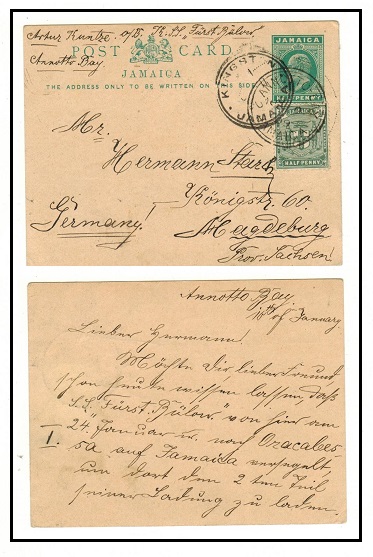 Arthur Kuntze a/B. K. SS "Fürst Bülow"
Annotto Bay
POST CARD
JAMAICA
THE ADDRESS ONLY TO BE WRITTEN ON THIS SIDE
JAMAICA
HALF PENNY
KINGSTON
JAMAICA
JAMAICA
HALF PENNY
Mr.
Hermann Stark
Königstr. 60
Germany! Magdeburg
Prov. Sachsen!
Annotto Bay
18th of January
Lieber Hermann!
Möchte Dir lieber Freund,
schon heute wissen lassen, daß
S.S. "Fürst Bülow" von hier am
24. Januar cr. nach Oracabes-
I. sa auf Jamaica versegelt,
um dort den 2ten Teil
seiner Ladung zu laden.